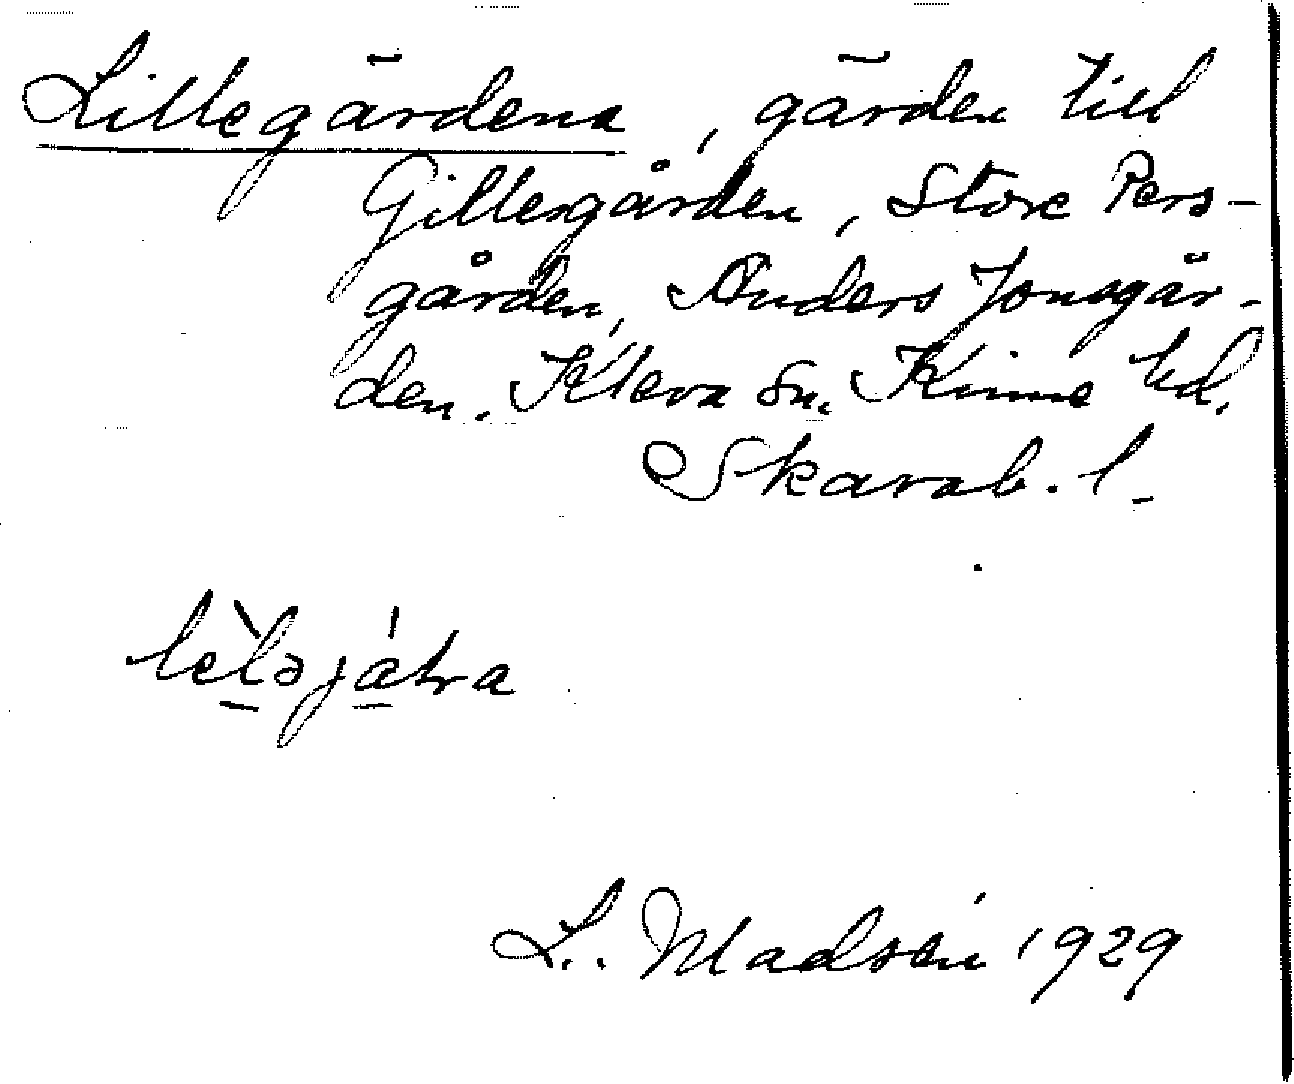 Lillegärdena, gärden till
Gillersgården, Store Pers-
gården, Anders Jonsgår-
den. Kleva sn. Kinne hd.
Skarab. l.
L. Madsén 1929